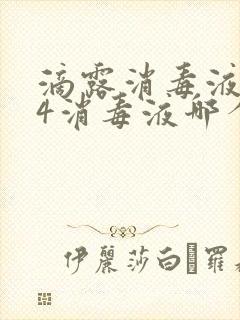 滴露消毒液
4消毒液哪
伊麗莎白 羅